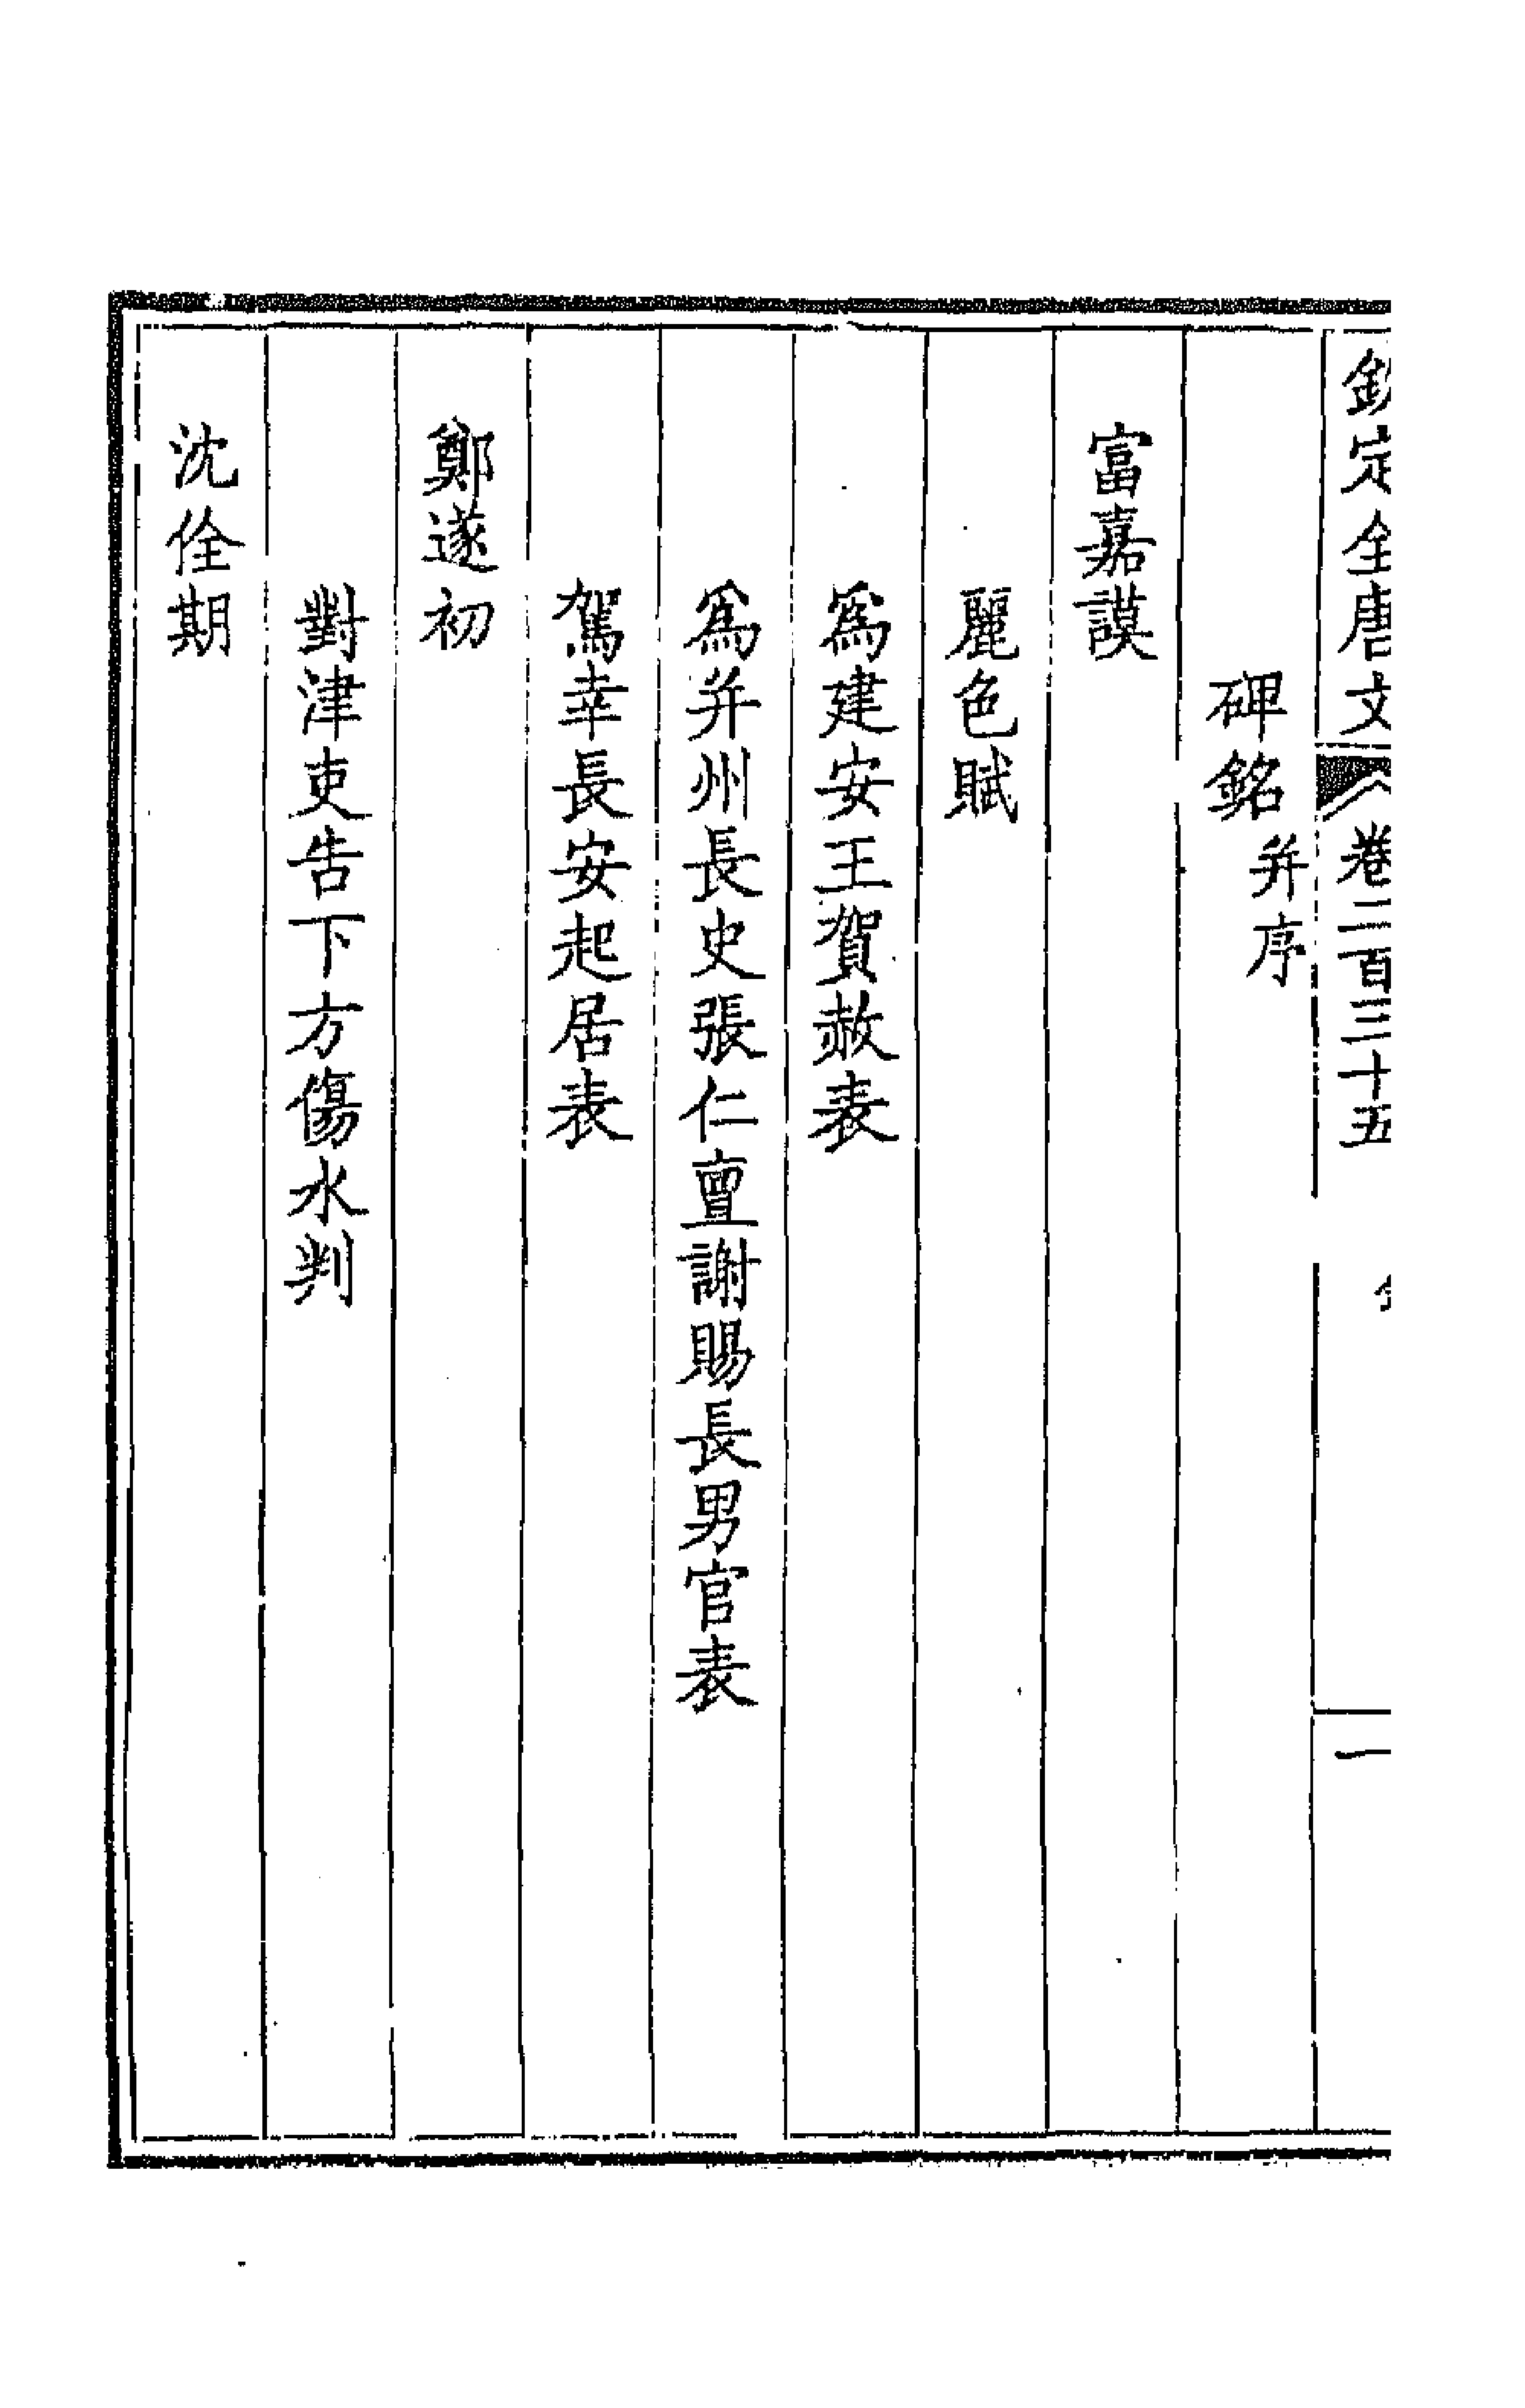 欽定全唐文 卷二百三十五 一
碑銘并序
富嘉謨
麗色賦
爲建安王賀赦表
爲并州長史張仁亶謝賜長男官表
駕幸長安起居表
鄭遂初
對津吏告下方傷水判
沈佺期